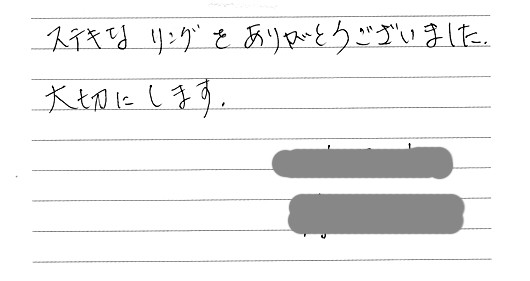 ステキな リングを ありがとうございました.
大切にします.